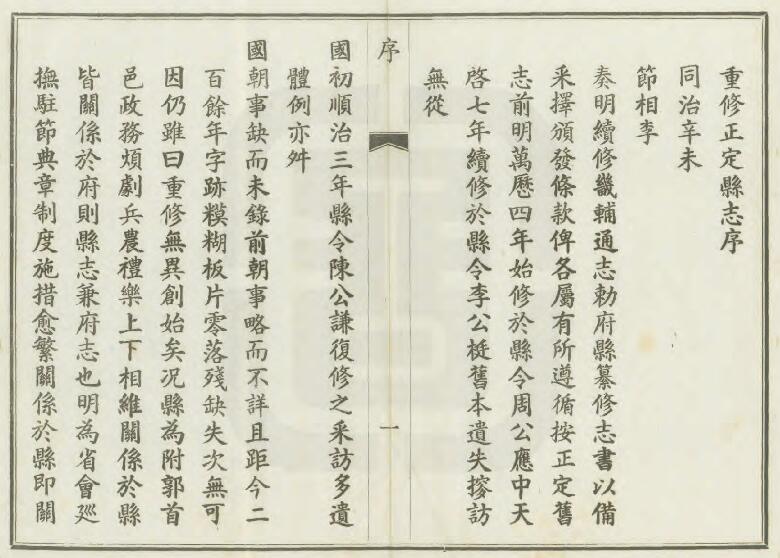 重修正定縣志序
同治辛未
節相李
奏明續修畿輔通志勅府縣纂修志書以備
采擇頒發條款俾各屬有所遵循按正定舊
志前明萬歷四年始修於縣令周公應中天
啓七年續修於縣令李公梃舊本遺失搜訪
無從
序
一
國初順治三年縣令陳公謙復修之采訪多遺
體例亦舛
國朝事缺而未錄前朝事略而不詳且距今二
百餘年字跡糢糊板片零落殘缺失次無可
因仍雖曰重修無異創始矣况縣為附郭首
邑政務煩劇兵農禮樂上下相維關係於縣
皆關係於府則縣志兼府志也明為省會廵
撫駐節典章制度施措愈繁關係於縣即關